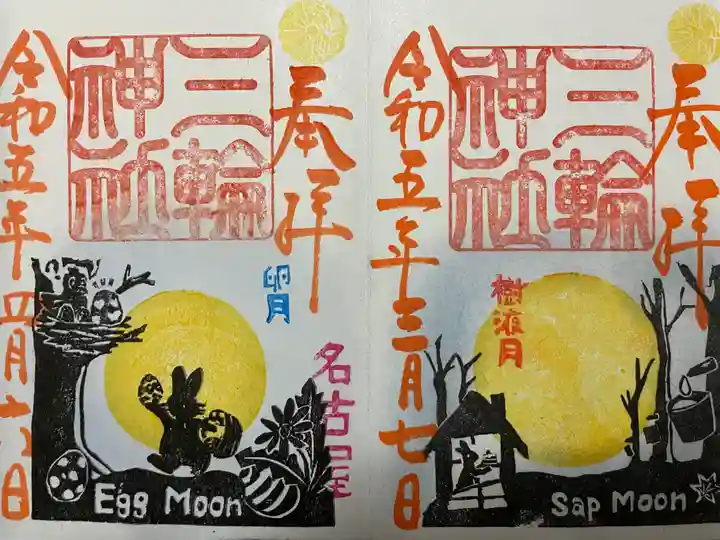 奉拝
三輪
神社
樹液月
令和五年三月七日
Sap Moon
奉拝
三輪
神社
卯月
名古屋
令和五年四月六日
Egg Moon